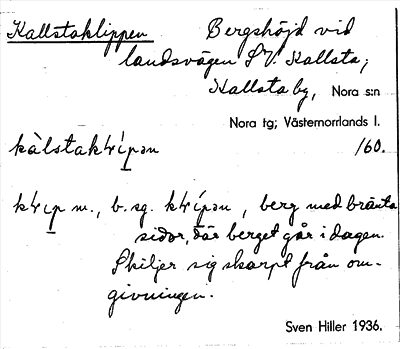 Kallstaklippen Bergshöjd vid
landsvägen SV. Kallsta;
Kallsta by, Nora s:n
Nora tg; Västernorrlands l.
kàlstaklìpən 160.
klip m., b. sg. klípən, berg med branta
sidor, där berget går i dagen.
Skiljer sig skarpt från om-
givningen.
Sven Hiller 1936.